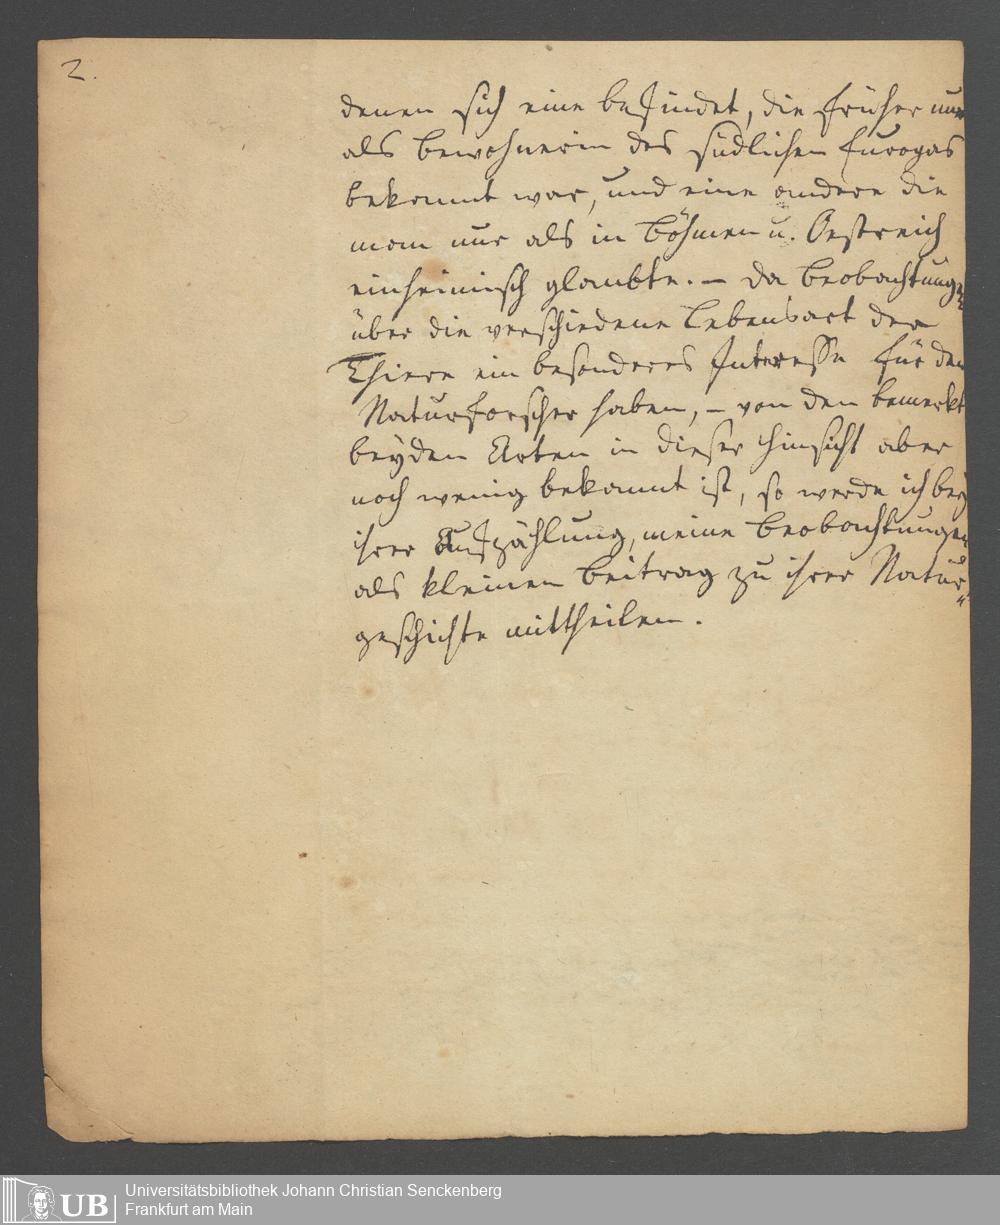 2.
denen sich eine befindet, die früher nur
als Bewohnerin des südlichen Europas
bekannt war, und eine andere die
man nur als in Böhmen u. Oestreich
einheimisch glaubte. – Da Beobachtungen
über die verschiedene Lebensart der
Thiere ein besonderes Interesse für den
Naturforscher haben, – von den bemerkt
beyden Arten in dieser Hinsicht aber
noch wenig bekannt ist, so werde ich bey
ihrer Aufzählung, meine Beobachtungen
als kleinen Beitrag zu ihrer Natur„
geschichte mittheilen.
UB
Universitätsbibliothek Johann Christian Senckenberg
Frankfurt am Main